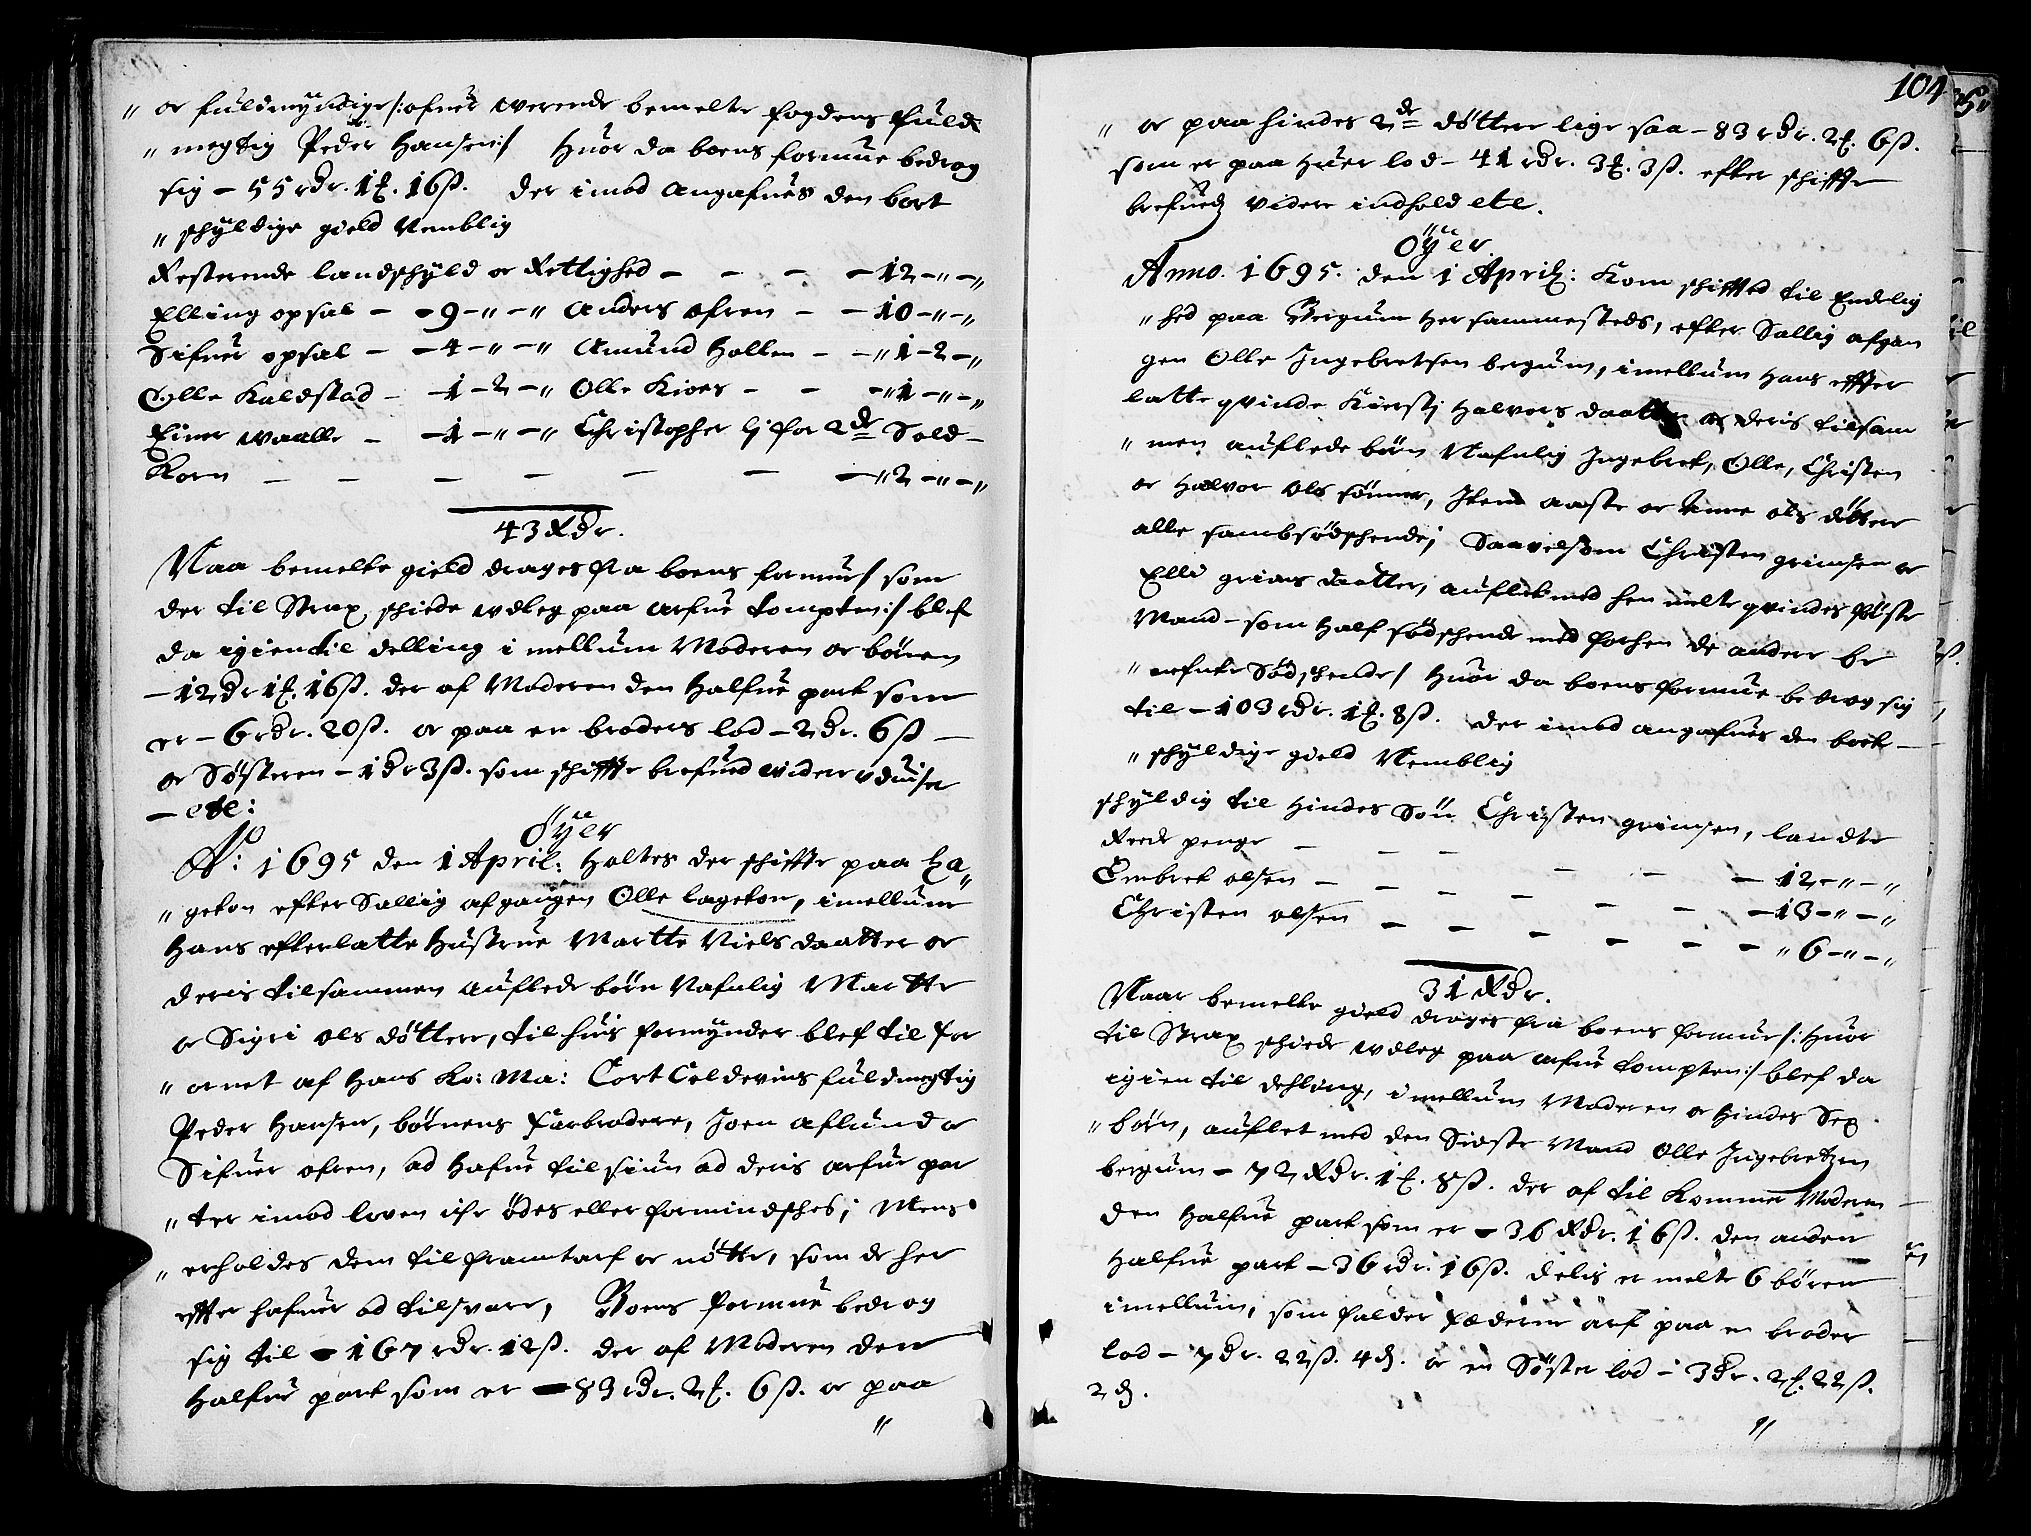 " or fuldmyndige /: ofuer werende bemelte fogdens fuld
" megtig Peder Hansen :/ Huor da boens formue bedrog
sig - 55 rdr. 1 ƶ. 16 ß. der imod angafues den bort
" schyldige gield Nemblig
Resterende landschyld or Rettighed - - - - 12 - " - "
Elling opsal - - 9 - " - " Anders ofren - - 10 - " - "
Sifuer opsal - - 4 - " - " Amund Hollen - - " 1 - 2 - "
Olle Kaldstad - - 1 - 2 - " Olle Kioes - - - " 1 - " - "
Einer waalle - - 1 - " - " Christopher lj for 2de Sold -
Korn - - - - - - " 2 - " - "
43 Rdr.
Naa bemelte gield drages fra boens formue / som
der til Strax schiede wdleg paa arfue tompten :/ blef
da igien til delling i mellum Moderen or börnen
- 12 dr 1 ƶ. 16 ß. der af Moderen den Halfue part som
er - 6 rdr. 20 ß. or paa en broders lod - 2 dr. 6 ß -
or Söstern - 1 dr 3 ß. som schiffte brefued wider wduiser
- etc:
Öÿer
Ao: 1695 den 1 April: Holtes der schiffte paa La"
" geton efter Sallig afgangen Olle lageton, imellum
Hans efterlatte Hustrue Martte Niels daatter or
deris tilsammen auflede börn Nafnlig Martte
or Sigri ols döttere, til huis formynder blef til for
" ornet af Hans Ko: Ma: Cort Coldevins fuldmegtig
Peder Hansen, börnens farbrodere, Joen aflund or
Sifuer ofren, ad Hafue tilsiun ad deris arfue par
" ter imod loven iche ödes eller formindsches; Mens
" erholdes dem til framtarf or nötte, som de her
effter hafuer ad tilsvare, Boens formue bedrog
sig til - 167 rdr. 12 ß. der af Moderen den
Halfue part som er - 83 rdr. 2 ƶ. 6 ß. or paa
"
104
" or paa hindes 2de döttere lige saa - 83 rdr. 2 ƶ. 6 ß.
som er paa Huer lod - 41 rdr. 3 ƶ. 3 ß. efter schiffte
brefuedz videre indhold etc.
Öÿer.
Anno. 1695. den 1 Aprilj: Kom schifftet til Endelig
" hed paa Bergum Her sammesteds, efter Sallig afgan
gen Olle Ingebretsen bergum, imellum Hans effter
latte qvinde Kiersti Halvors daatter or deris tilsam
" men auflede börn Nafnlig Ingebret, Olle, Christen
or Halvor ols sönner, Item aaste or Anne ols döttere
alle sambsödschende; Saavelsom Christen grimsen or
Elli grims daatter, auflet med hen melte qvindes föste
Mand - som Half södschende med forhen de andere be
" nefnte Södschende / Huor da boens formue bedrog sig
til - 103 rdr. 1 ƶ. 8 ß. der imod angafues den bort -
" schyldige gield Nemblig
schyldig til Hindes Sön Christen grimsen, landte
Rede penge - - - - - - 12 - " - "
Embret olsen - - - - - - 13 - " - "
Christen olsen - - - - - - " 6 - " - "
31 Rdr.
Naar bemelte gield drages fra boens formue /: Huor
til Strax schiede wdleg paa arfue tompten :/ blef da
igien til dehling, imellum Moderen or Hindes Sex
" börn, auflet med den Sidste Mand Olle Ingebretzen
bergum - 72 Rdr. 1 ƶ. 8 ß. der af til Kommer Moderen
den Halfue part som er - 36 Rdr. 16 ß. den anden
Halfue part - 36 rdr. 16 ß. delis er melte 6 börn
imellum, som falder Fæderne arf paa en broder
lod - 7 dr. 22 ß. 4 d. or en Söster lod - 3 dr. 2 ƶ. 22 ß.
2 d.
"